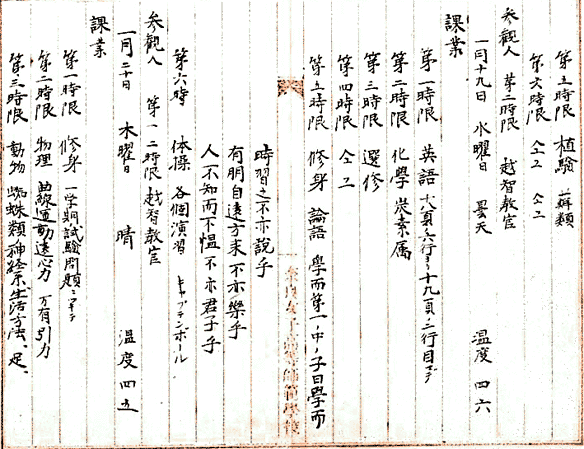 第五時限 植驗 一辨類
第六時限 仝上 仝上
参觀人 第二時限 越智教官
一月十九日 水曜日 曇天 温度 四六
課業
第一時限 英語 十八頁ノ六行ヨリ十九頁ノ三行目マデ
第二時限 化學 炭素属
第三時限 選修
第四時限 仝上
第五時限 修身 論語 學而第一ノ中ノ子曰學而
時習之不亦説乎
有朋自遠方来不亦樂乎
人不知而不慍不亦君子乎
第六時 体操 各個演習 キャプテンボール
参觀人 第一二時限 越智教官
一月二十日 木曜日 晴 温度 四五
課業
第一時限 修身 一学期試験問題ニツキテ
第二時限 物理 曲線運動遠心力 万有引力
第三時限 動物 蜘蛛類神経系生活方法、足、
奈良女子高等師範學校